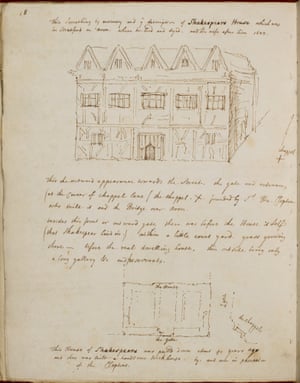 This Something by memory and ye description of Shakespears House which was
in Stratford on avon. where he livd and dyed. and his wife after him 1623.
chappel
This the outward appearance towards the Street. the gate and entrance,
(at the Corner of chappel lane
who built it and the Bridge over Avon.
besides this front or outward gate there was before the House it self
(that Shakespear livd in.) within a little court yard. grass growing
there — before the real dwelling house. this outside being only
a long gallery &c and for servants.
The House
the gate
chappel
This House of Shakespears was pulled down about 40 years ago
and then was built a handsome brick house. by and now in possession
of the Cloptons.